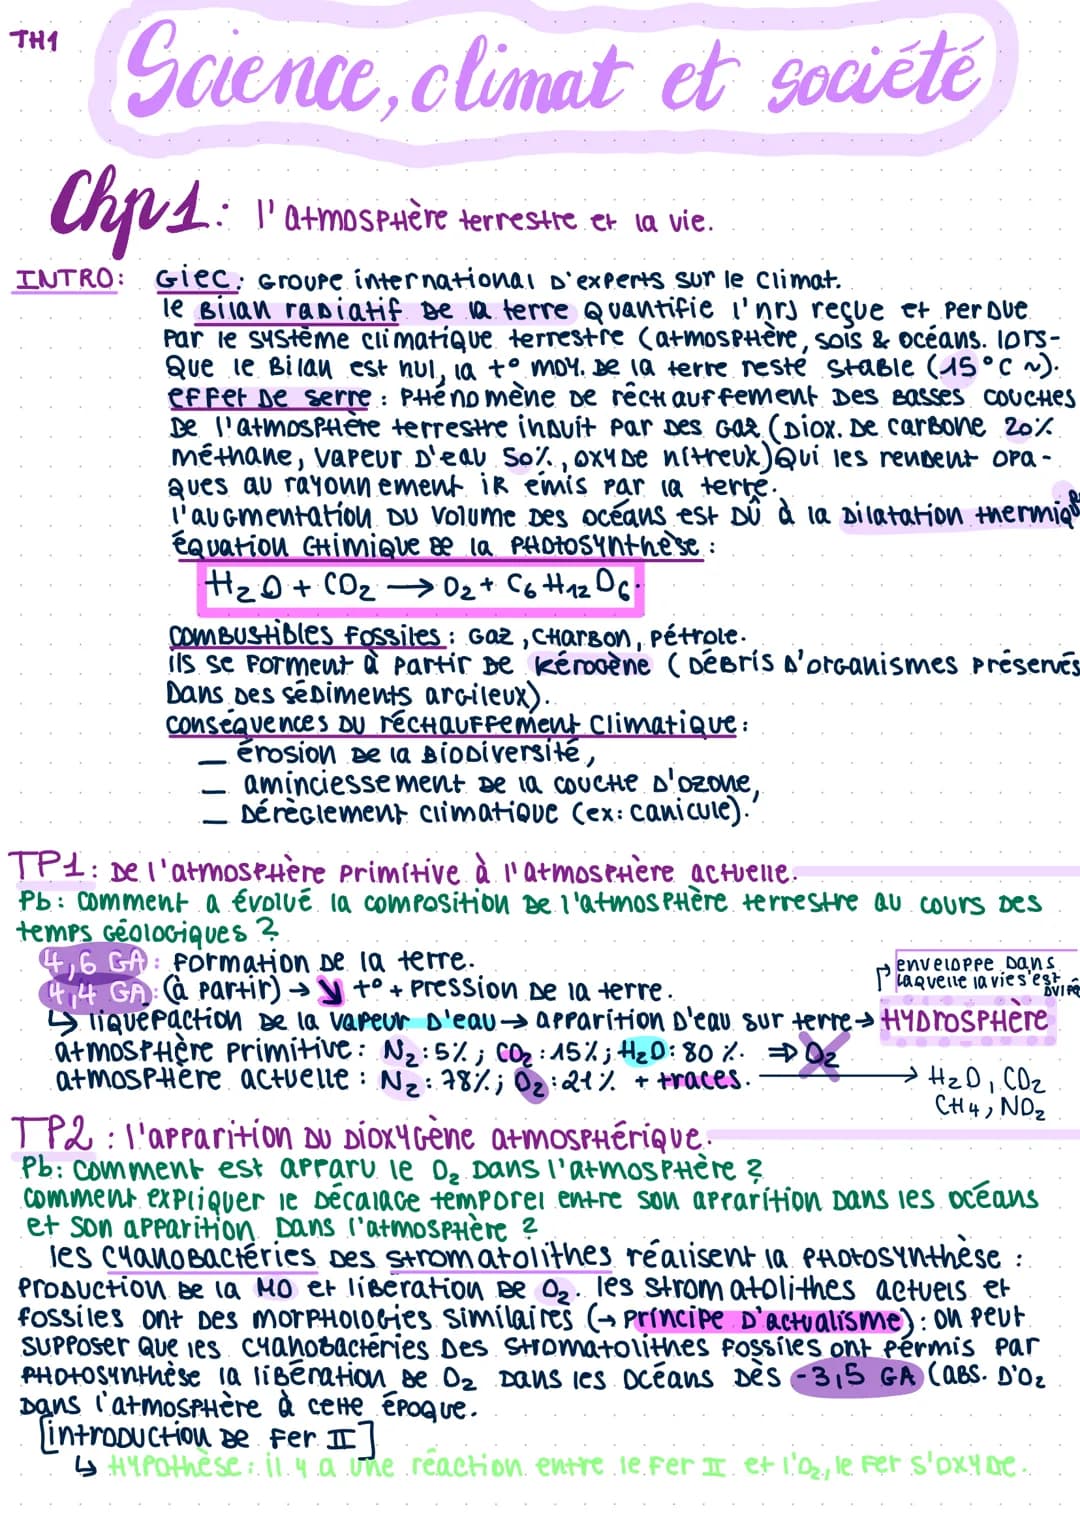 TH1
Science, climat et société
Chp1: l'atmosphère terrestre et la vie.
INTRO: Giec: Groupe international d'experts sur le climat.
le Bilan radiatif de la terre quantifie l'nrj reçue et perdue
par le système climatique terrestre (atmosphère, sols & océans. lors-
que le Bilan est nul, la t° moy. de la terre reste stable (15°C ~).
effet de serre : phénomène de réchauffement des basses couches
de l'atmosphère terrestre induit par des gaz (diox. de carbone 20%
méthane, vapeur d'eau 50%, oxyde nitreux) qui les rendent opa-
ques au rayonnement iR émis par la terre.
l'augmentation du volume des océans est dû à la dilatation thermique
équation chimique de la photosynthèse :
H2O + CO2 → O2 + C6H12O6.
combustibles fossiles : Gaz, charbon, pétrole.
ils se forment à partir de kérogène (débris d'organismes préservés
dans des sédiments argileux).
conséquences du réchauffement climatique :
— érosion de la biodiversité,
— aminciessement de la couche d'ozone,
— dérèglement climatique (ex: canicule).
TP1: de l'atmosphère primitive à l'atmosphère actuelle.
Pb: comment a évolué la composition de l'atmosphère terrestre au cours des
temps géologiques ?
4,6 GA: formation de la terre.
4,4 GA: (à partir) → ↘ t° + pression de la terre.
enveloppe dans
laquelle la vies'est
↳ liquéfaction de la vapeur d'eau → apparition d'eau sur terre → HYDrosphère
atmosphère primitive : N2: 5% ; CO2: 15% ; H2O: 80 %. ⇒ O2
atmosphère actuelle : N2: 78% ; O2: 21% + traces. → H2O, CO2
CH4, NO2
TP2 : l'apparition du dioxygène atmosphérique.
Pb: comment est apparu le O2 dans l'atmosphère ?
comment expliquer le décalage temporel entre son apparition dans les océans
et son apparition dans l'atmosphère ?
les cyanobactéries des stromatolithes réalisent la photosynthèse :
production de la MO et libération de O2. les stromatolithes actuels et
fossiles ont des morphologies similaires (→ principe d'actualisme) : on peut
supposer que les cyanobactéries des stromatolithes fossiles ont permis par
photosynthèse la libération de O2 dans les océans dès -3,5 GA (abs. d'O2
dans l'atmosphère à cette époque.
[introduction de fer II]
↳ Hypothèse : il y a une réaction entre le fer II et l'O2, le fer s'oxyde.